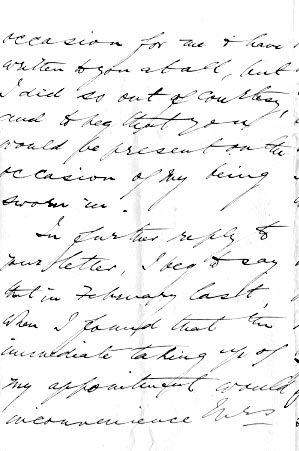 occasion for me to have
written to you at all, but
I did so out of courtesy,
and to beg that you
would be present on the
occasion of my being
sworn in.
In further reply to
your letter, I beg to say
that in February last,
when I found that the
immediate taking up of
my appointment would
inconvenience Mrs